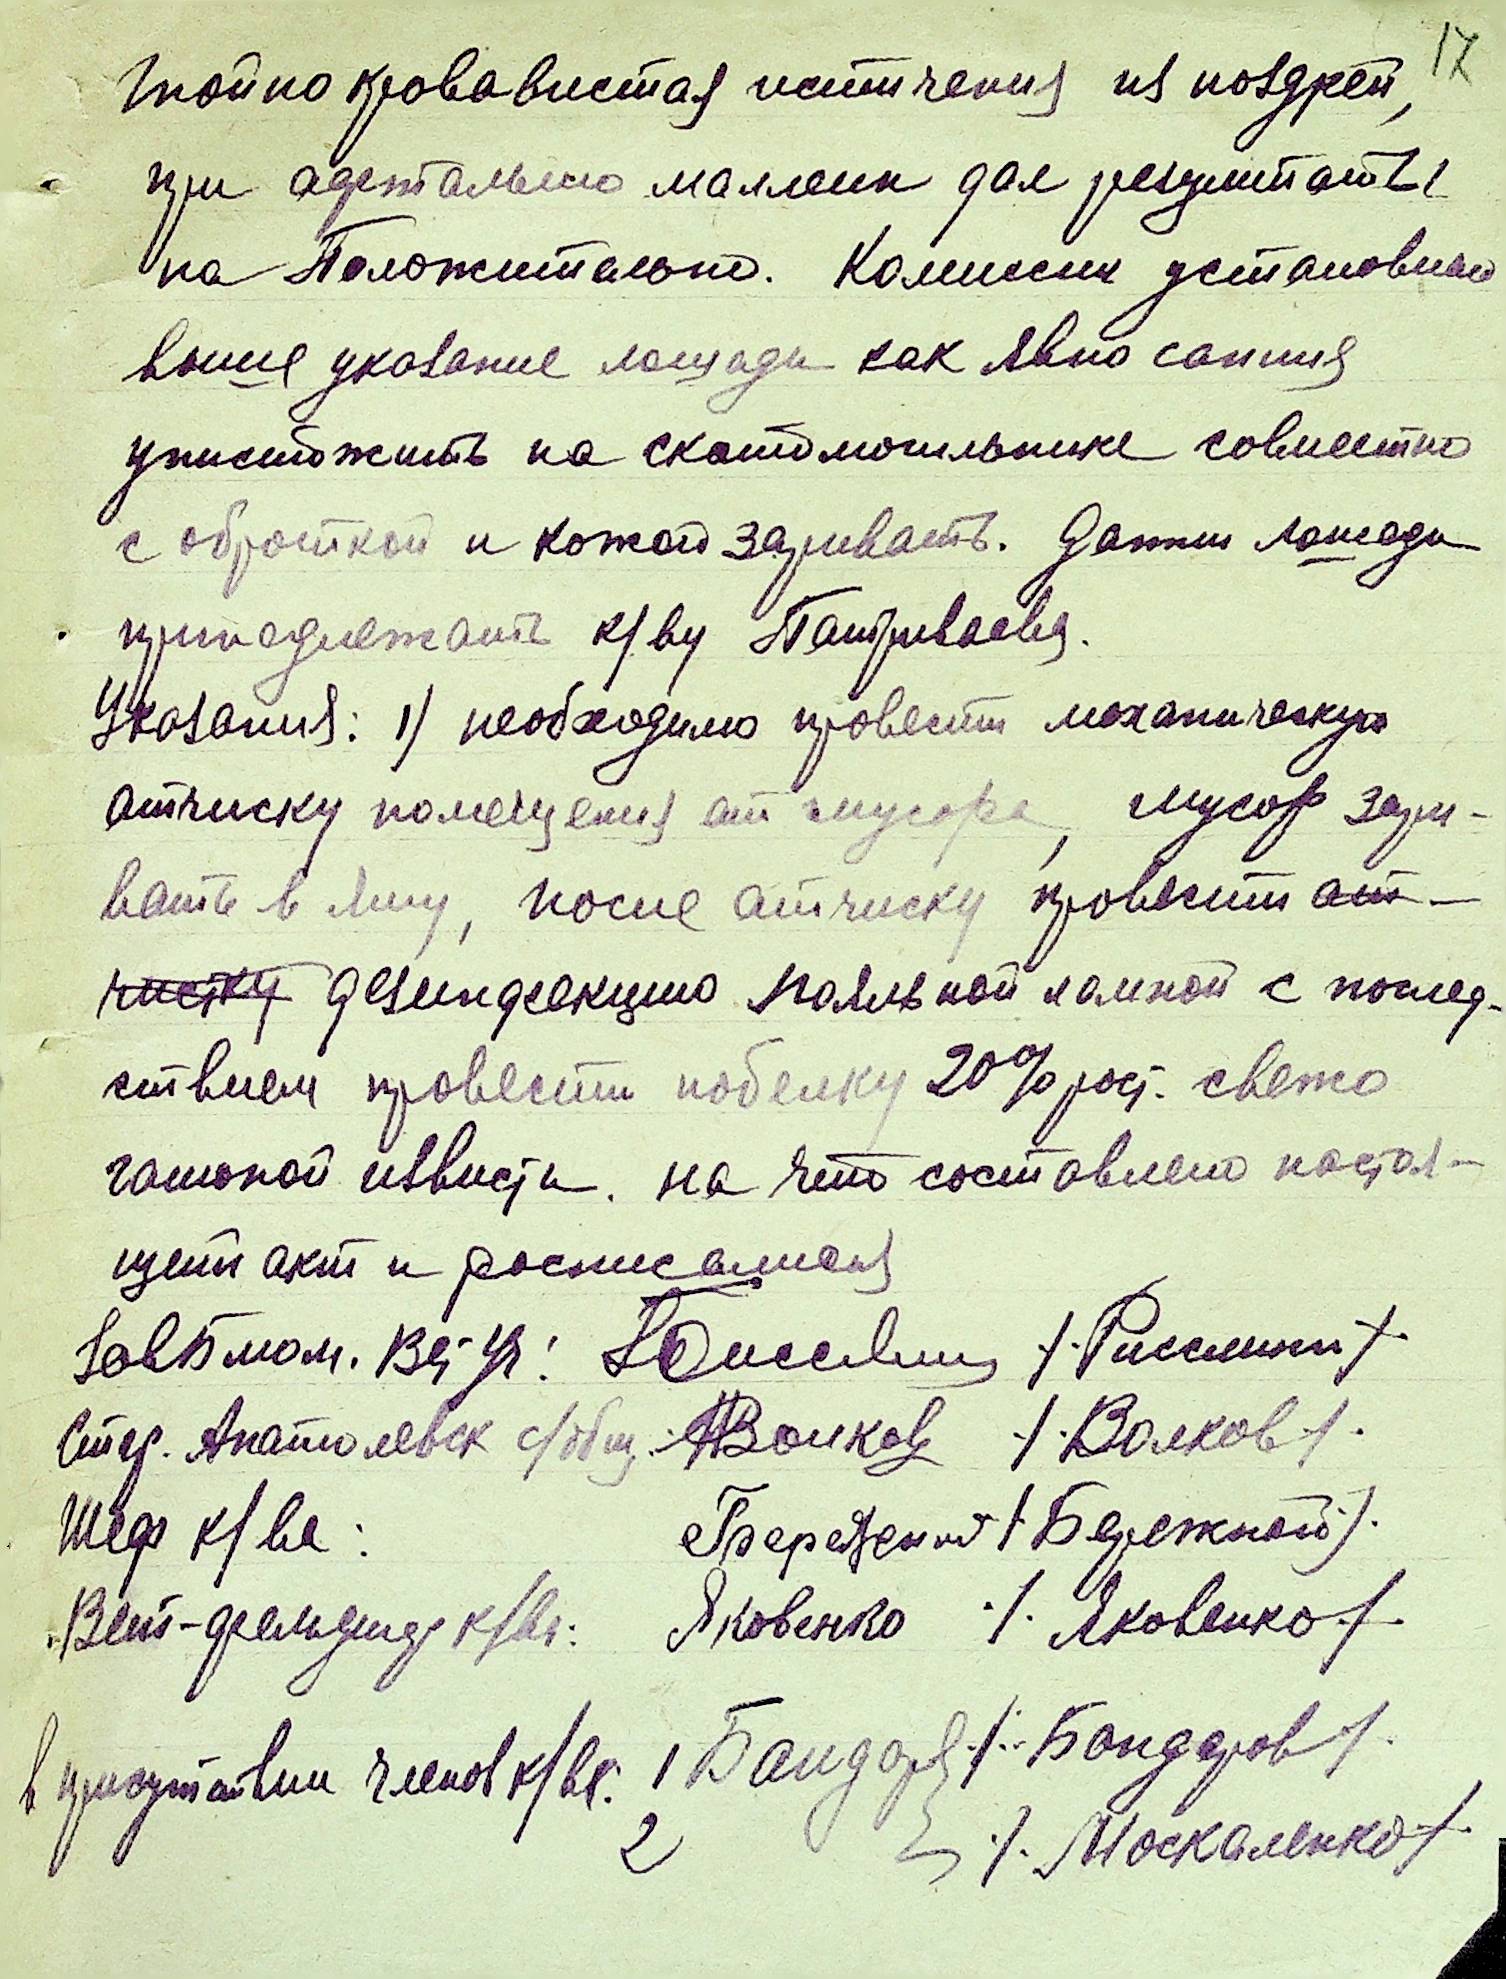 17
Гнойно кровавистая истичения из ноздрей,
при адетально маллеин дал результаты
на Положительно. Комиссии установило
выше указание лошади как явно сапния
уничтожить на скотомогильнике совместно
с оброткой и кожой зарывать. Данни лошади
принедлежать к/ву Патриваева.
Указания: 1) необходимо провести механическую
атчиску помещения от мусора, мусор зары-
вать в яму, после атчиску провести ат-
чистку дезинфекцию паяльной лампой с послед-
ствием провести побелку 20% раст. свежо
гашоной извисти. на что составлено настоя-
щети акт и росписалися
Зав Вет. Уч: /Риссмики/
Стар. Анатолевск с/общ. Волков /Волков/
Шеф к/ва: Бережной /Бережной/
Вет-фельдшер к/ва: Яковенко /Яковенко/
в присутствии членов к/ва: 1 Бандар /Бондаров/
2 /Москаленко/